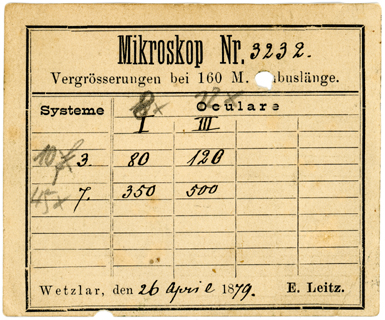 Mikroskop Nr. 3232.
Vergrösserungen bei 160 M. buslänge.
8x 12x
Systeme Oculare
I III
10x 3. 80 120
45x 7. 350 500
Wetzlar, den 26 April 1879. E. Leitz.